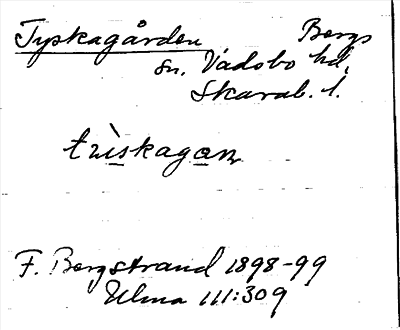 Tyskagården Bergs
sn. Vadsbo hd.
Skarab. l.
F. Bergstrand 1898-99
Ulma 111:309